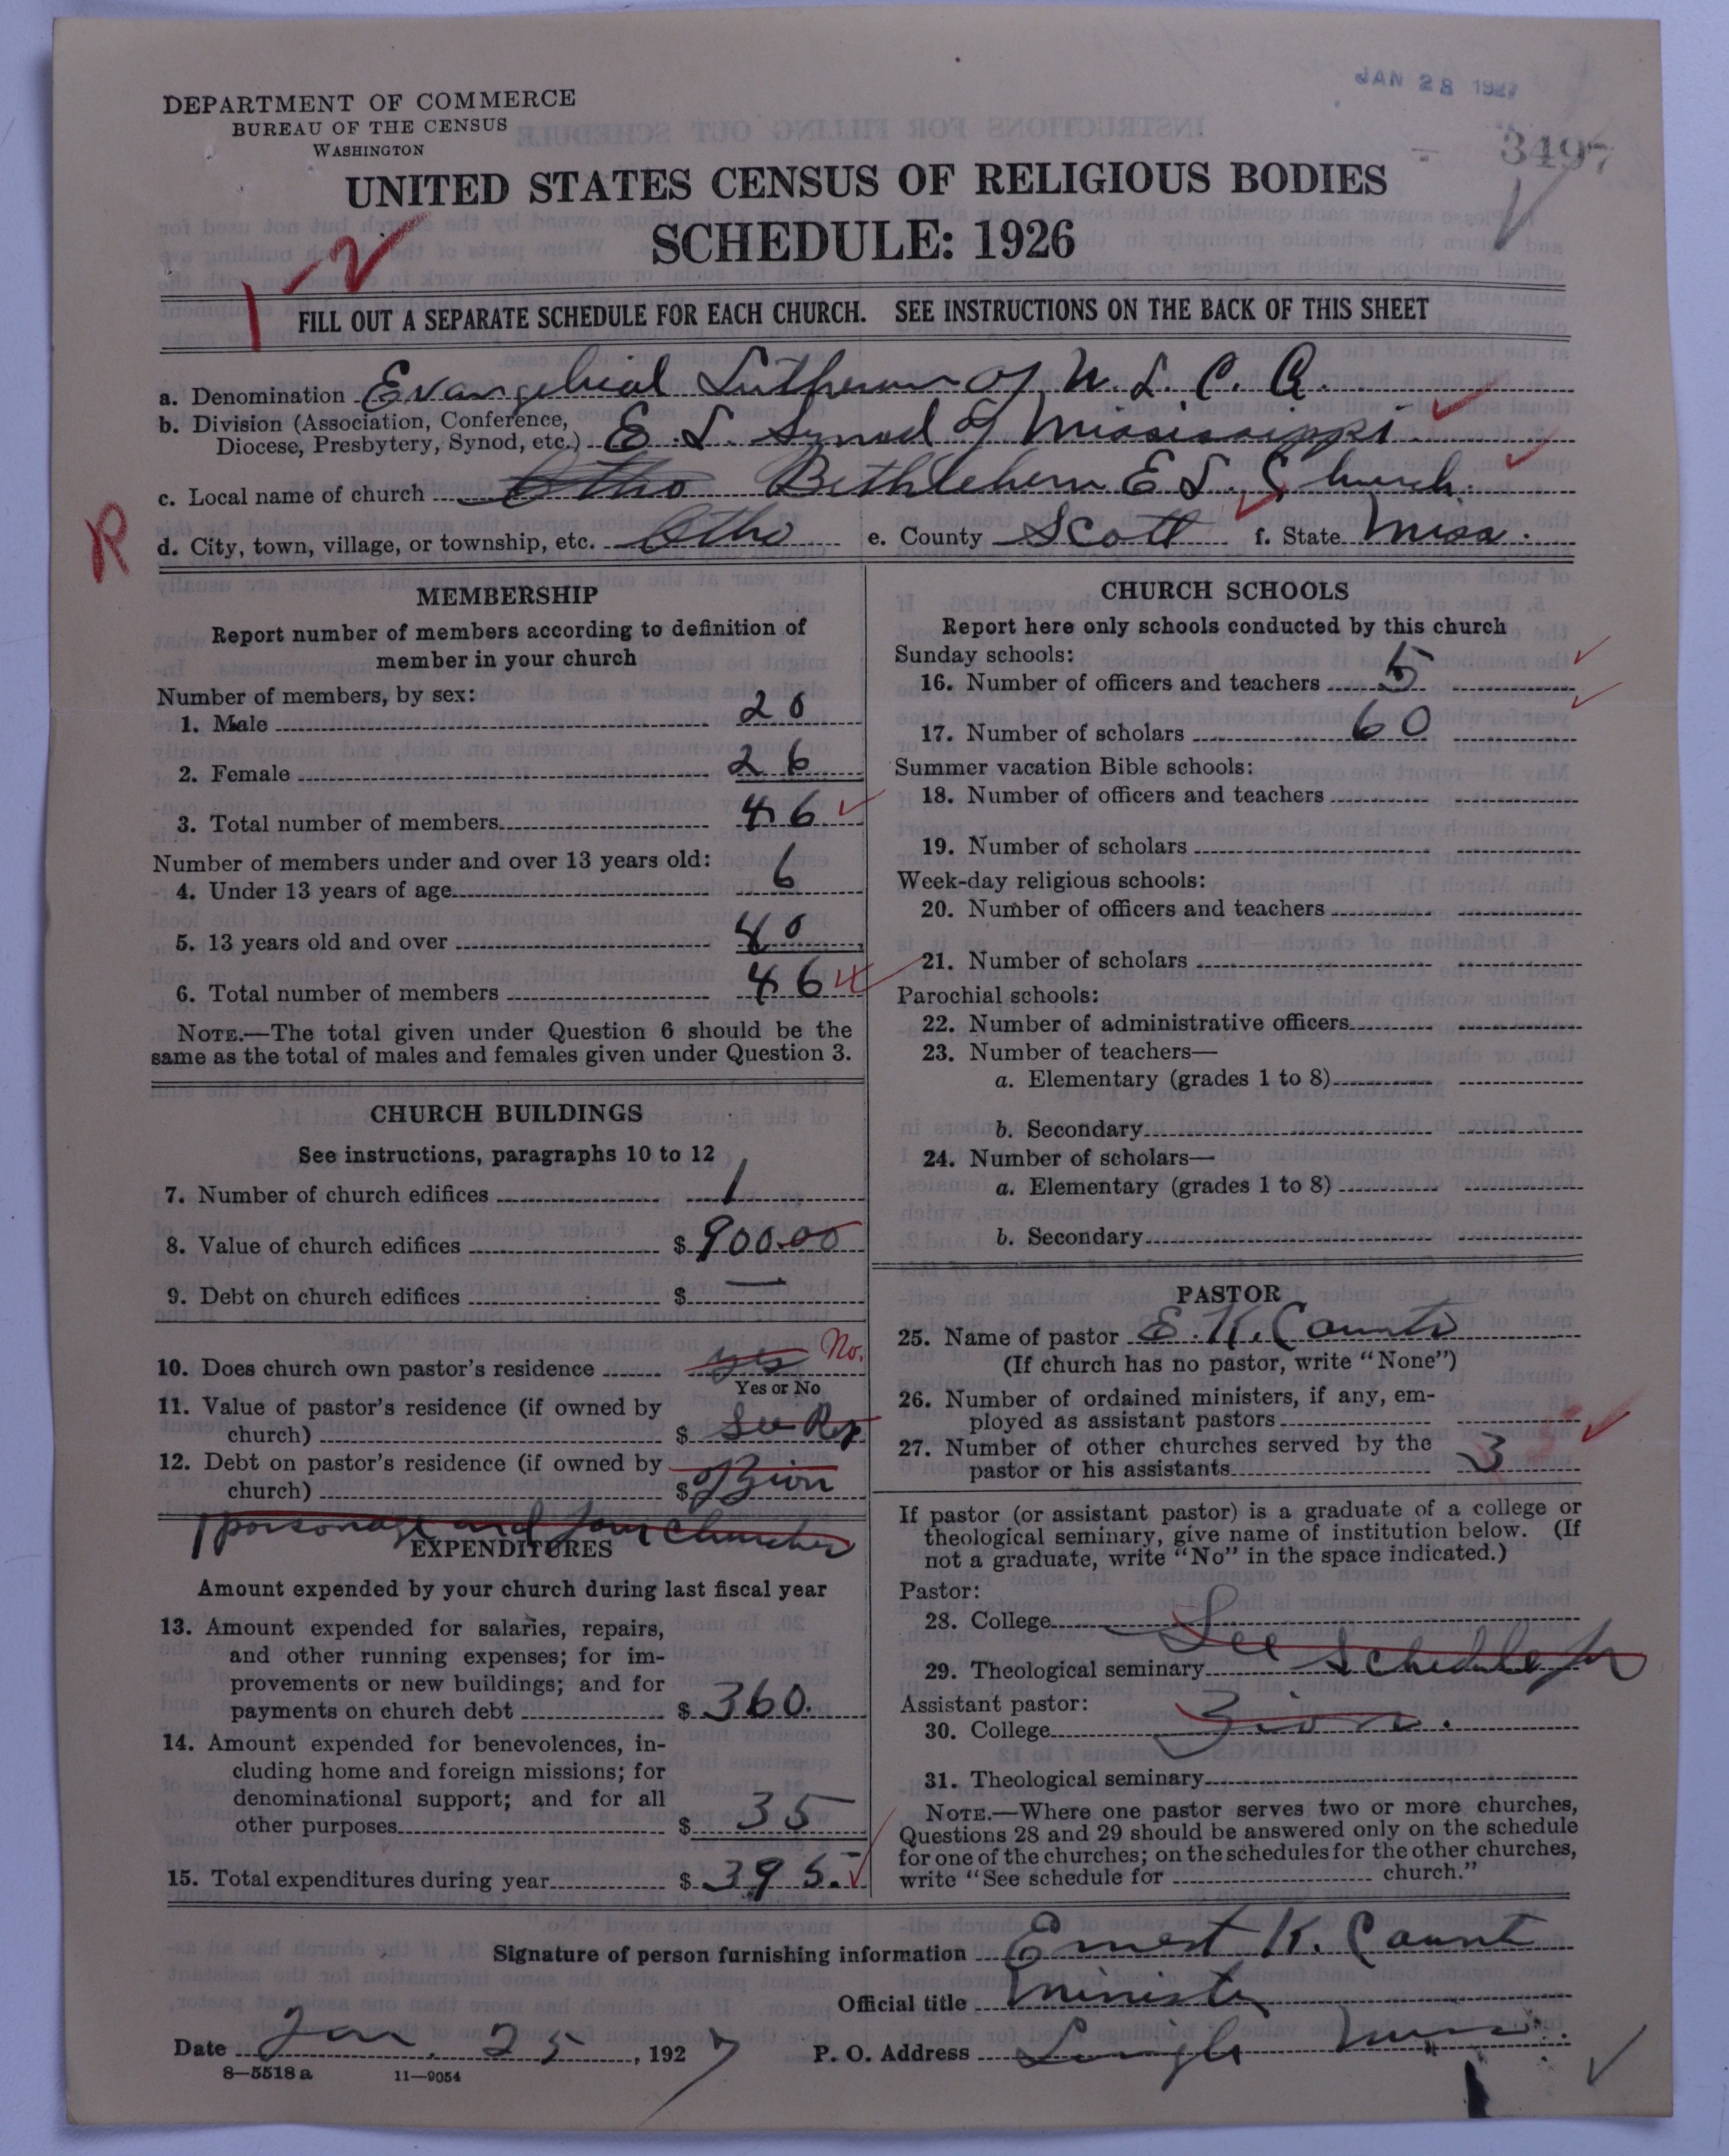 JAN 28 1927
DEPARTMENT OF COMMERCE
BUREAU OF THE CENSUS
WASHINGTON
3497
UNITED STATES CENSUS OF RELIGIOUS BODIES
SCHEDULE: 1926
FILL OUT A SEPARATE SCHEDULE FOR EACH CHURCH. SEE INSTRUCTIONS ON THE BACK OF THIS SHEET
a. Denomination Evangelical Lutheran of U. L. C. A.
b. Division (Association, Conference,
Diocese, Presbytery, Synod, etc.) E. L. Synod of Mississippi
c. Local name of church Otho Bethlehem E L. Church.
R
d. City, town, village, or township, etc. Otho e. County Scott f. State Miss.
MEMBERSHIP
Report number of members according to definition of
member in your church
Number of members, by sex:
1. Male 20
2. Female 26
3. Total number of members 46
Number of members under and over 13 years old:
4. Under 13 years of age 6
5. 13 years old and over 40
6. Total number of members 46
NOTE.—The total given under Question 6 should be the
same as the total of males and females given under Question 3.
CHURCH BUILDINGS
See instructions, paragraphs 10 to 12
7. Number of church edifices 1
8. Value of church edifices $ 900.00
9. Debt on church edifices $ —
10. Does church own pastor's residence yes No.
Yes or No
11. Value of pastor's residence (if owned by
church) $ See Rep
12. Debt on pastor's residence (if owned by
church) $ of Zion
1 parsonage and four churches
EXPENDITURES
Amount expended by your church during last fiscal year
13. Amount expended for salaries, repairs,
and other running expenses; for im-
provements or new buildings; and for
payments on church debt $ 360.
14. Amount expended for benevolences, in-
cluding home and foreign missions; for
denominational support; and for all
other purposes $ 35
15. Total expenditures during year $ 395.
CHURCH SCHOOLS
Report here only schools conducted by this church
Sunday schools:
16. Number of officers and teachers 5
17. Number of scholars 60
Summer vacation Bible schools:
18. Number of officers and teachers
19. Number of scholars
Week-day religious schools:
20. Number of officers and teachers
21. Number of scholars
Parochial schools:
22. Number of administrative officers
23. Number of teachers—
a. Elementary (grades 1 to 8)
b. Secondary
24. Number of scholars—
a. Elementary (grades 1 to 8)
b. Secondary
PASTOR
25. Name of pastor E. K. Counts
(If church has no pastor, write "None")
26. Number of ordained ministers, if any, em-
ployed as assistant pastors
27. Number of other churches served by the
pastor or his assistants 3
If pastor (or assistant pastor) is a graduate of a college or
theological seminary, give name of institution below. (If
not a graduate, write "No" in the space indicated.)
Pastor:
28. College See
29. Theological seminary Schedule for
Assistant pastor:
30. College Zion.
31. Theological seminary
NOTE.—Where one pastor serves two or more churches,
Questions 28 and 29 should be answered only on the schedule
for one of the churches; on the schedules for the other churches,
write "See schedule for church."
Signature of person furnishing information Ernest K. Count
Official title Minister
Date Jan. 25, 1927 P. O. Address Miss.
8—5518 a 11—9054